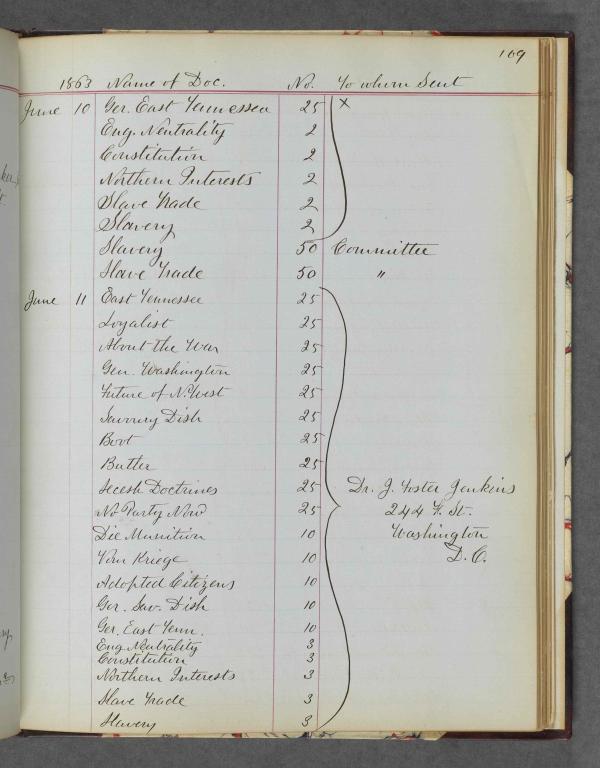 169
1863 Name of Doc. No. To whom Sent
June 10 Ger. East Tennessea 25 x
Eng. Neutrality 2
Constitution 2
Northern Interests 2
Slave Trade 2
Slavery 2
Slavery 50 Committee
Slave Trade 50 "
June 11 East Tennessee 25
Loyalist 25
About the War 25
Gen. Washington 25
Future of N. West 25
Savoury Dish 25
Boot 25
Butler 25
Secesh Doctrines 25 Dr. J. Foster Jenkins
No Party Now 25 244 F. St.
Die Munition 10 Washington
Vom Kriege 10 D.C.
Adopted Citizens 10
Ger. Sav. Dish 10
Ger. East Tenn. 10
Eng. Neutrality 3
Constitution 3
Northern Interests 3
Slave Trade 3
Slavery 3